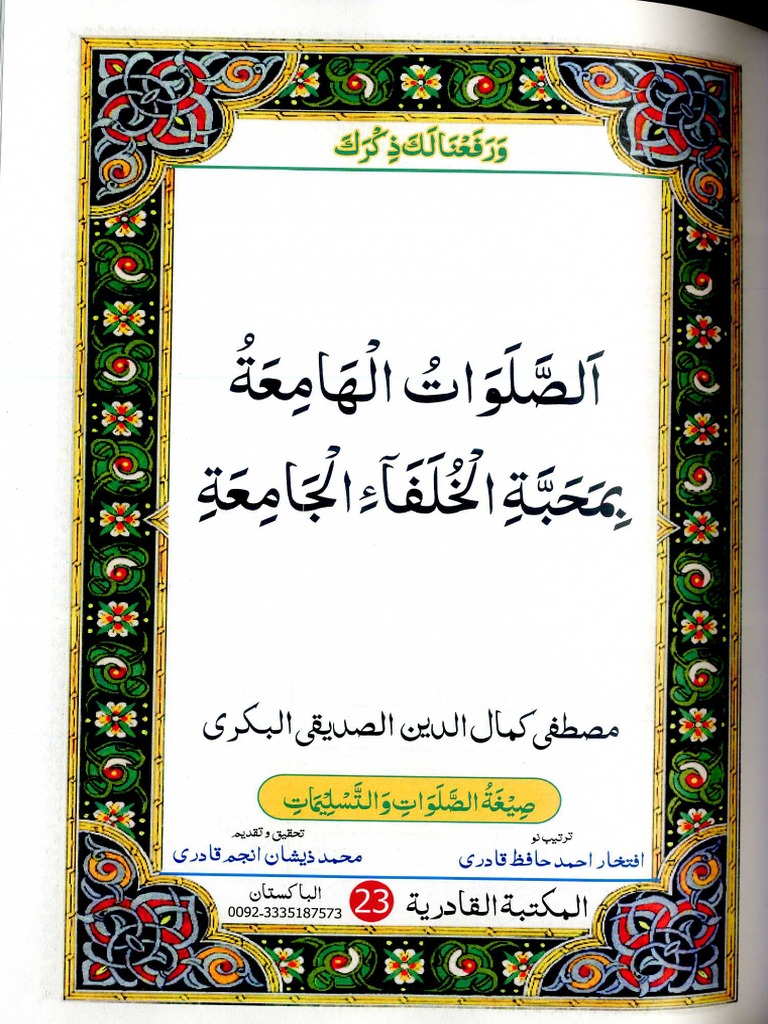 وَرَفَعْنَا لَكَ ذِكْرَكَ
اَلصَّلَوَاتُ الْهَامِعَةُ
بِمَحَبَّةِ الْخُلَفَآءِ الْجَامِعَةِ
مصطفی کمال الدین الصدیقی البکری
صِيْغَةُ الصَّلَوَاتِ وَالتَّسْلِيْمَاتِ
ترتیب نو
افتخار احمد حافظ قادری
تحقیق و تقدیم
محمد ذیشان انجم قادری
المکتبة القادریة 23 الباکستان
0092-3335187573